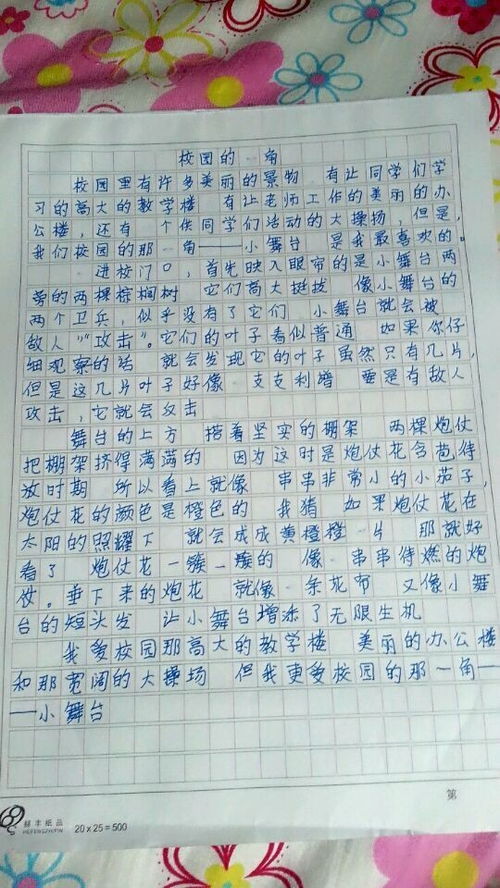 校园的一角
校园里有许多美丽的景物 有让同学们学
习的高大的教学楼 有让老师工作的美丽的办
公楼，还有 个供同学们活动的大操场，但是，
我们校园的那一角——小舞台 是我最喜欢的。
进校门口，首先映入眼帘的是小舞台两
旁的两棵棕榈树 它们高大挺拔 像小舞台的
两个卫兵，似乎没有了它们 小舞台就会被
敌人"攻击"。它们的叶子看似普通 如果你仔
细观察的话 就会发现它的叶子虽然只有几片，
但是这几片叶子好像 支支利 是有敌人
攻击，它就会攻击
舞台的上方 搭着坚实的棚架 两棵炮仗
把棚架挤得满满的 因为这时是炮仗花含苞待
放时期 所以看上就像 串串非常小的小茄子，
炮仗花的颜色是橙色的 我猜 如果炮仗花在
太阳的照耀下 就会成成黄橙橙一片 那就好
看了 炮仗花一簇一簇的 像一串串待燃的炮
仗。垂下来的炮花 就像一条花布 又像小舞
台的短头发 让小舞台增添了无限生机
我爱校园那高大的教学楼 美丽的办公楼
和那宽阔的大操场 但我更爱校园的那一角—
—小舞台
第
赫丰纸品
HEFENGZHIPIN
20 x 25 = 500